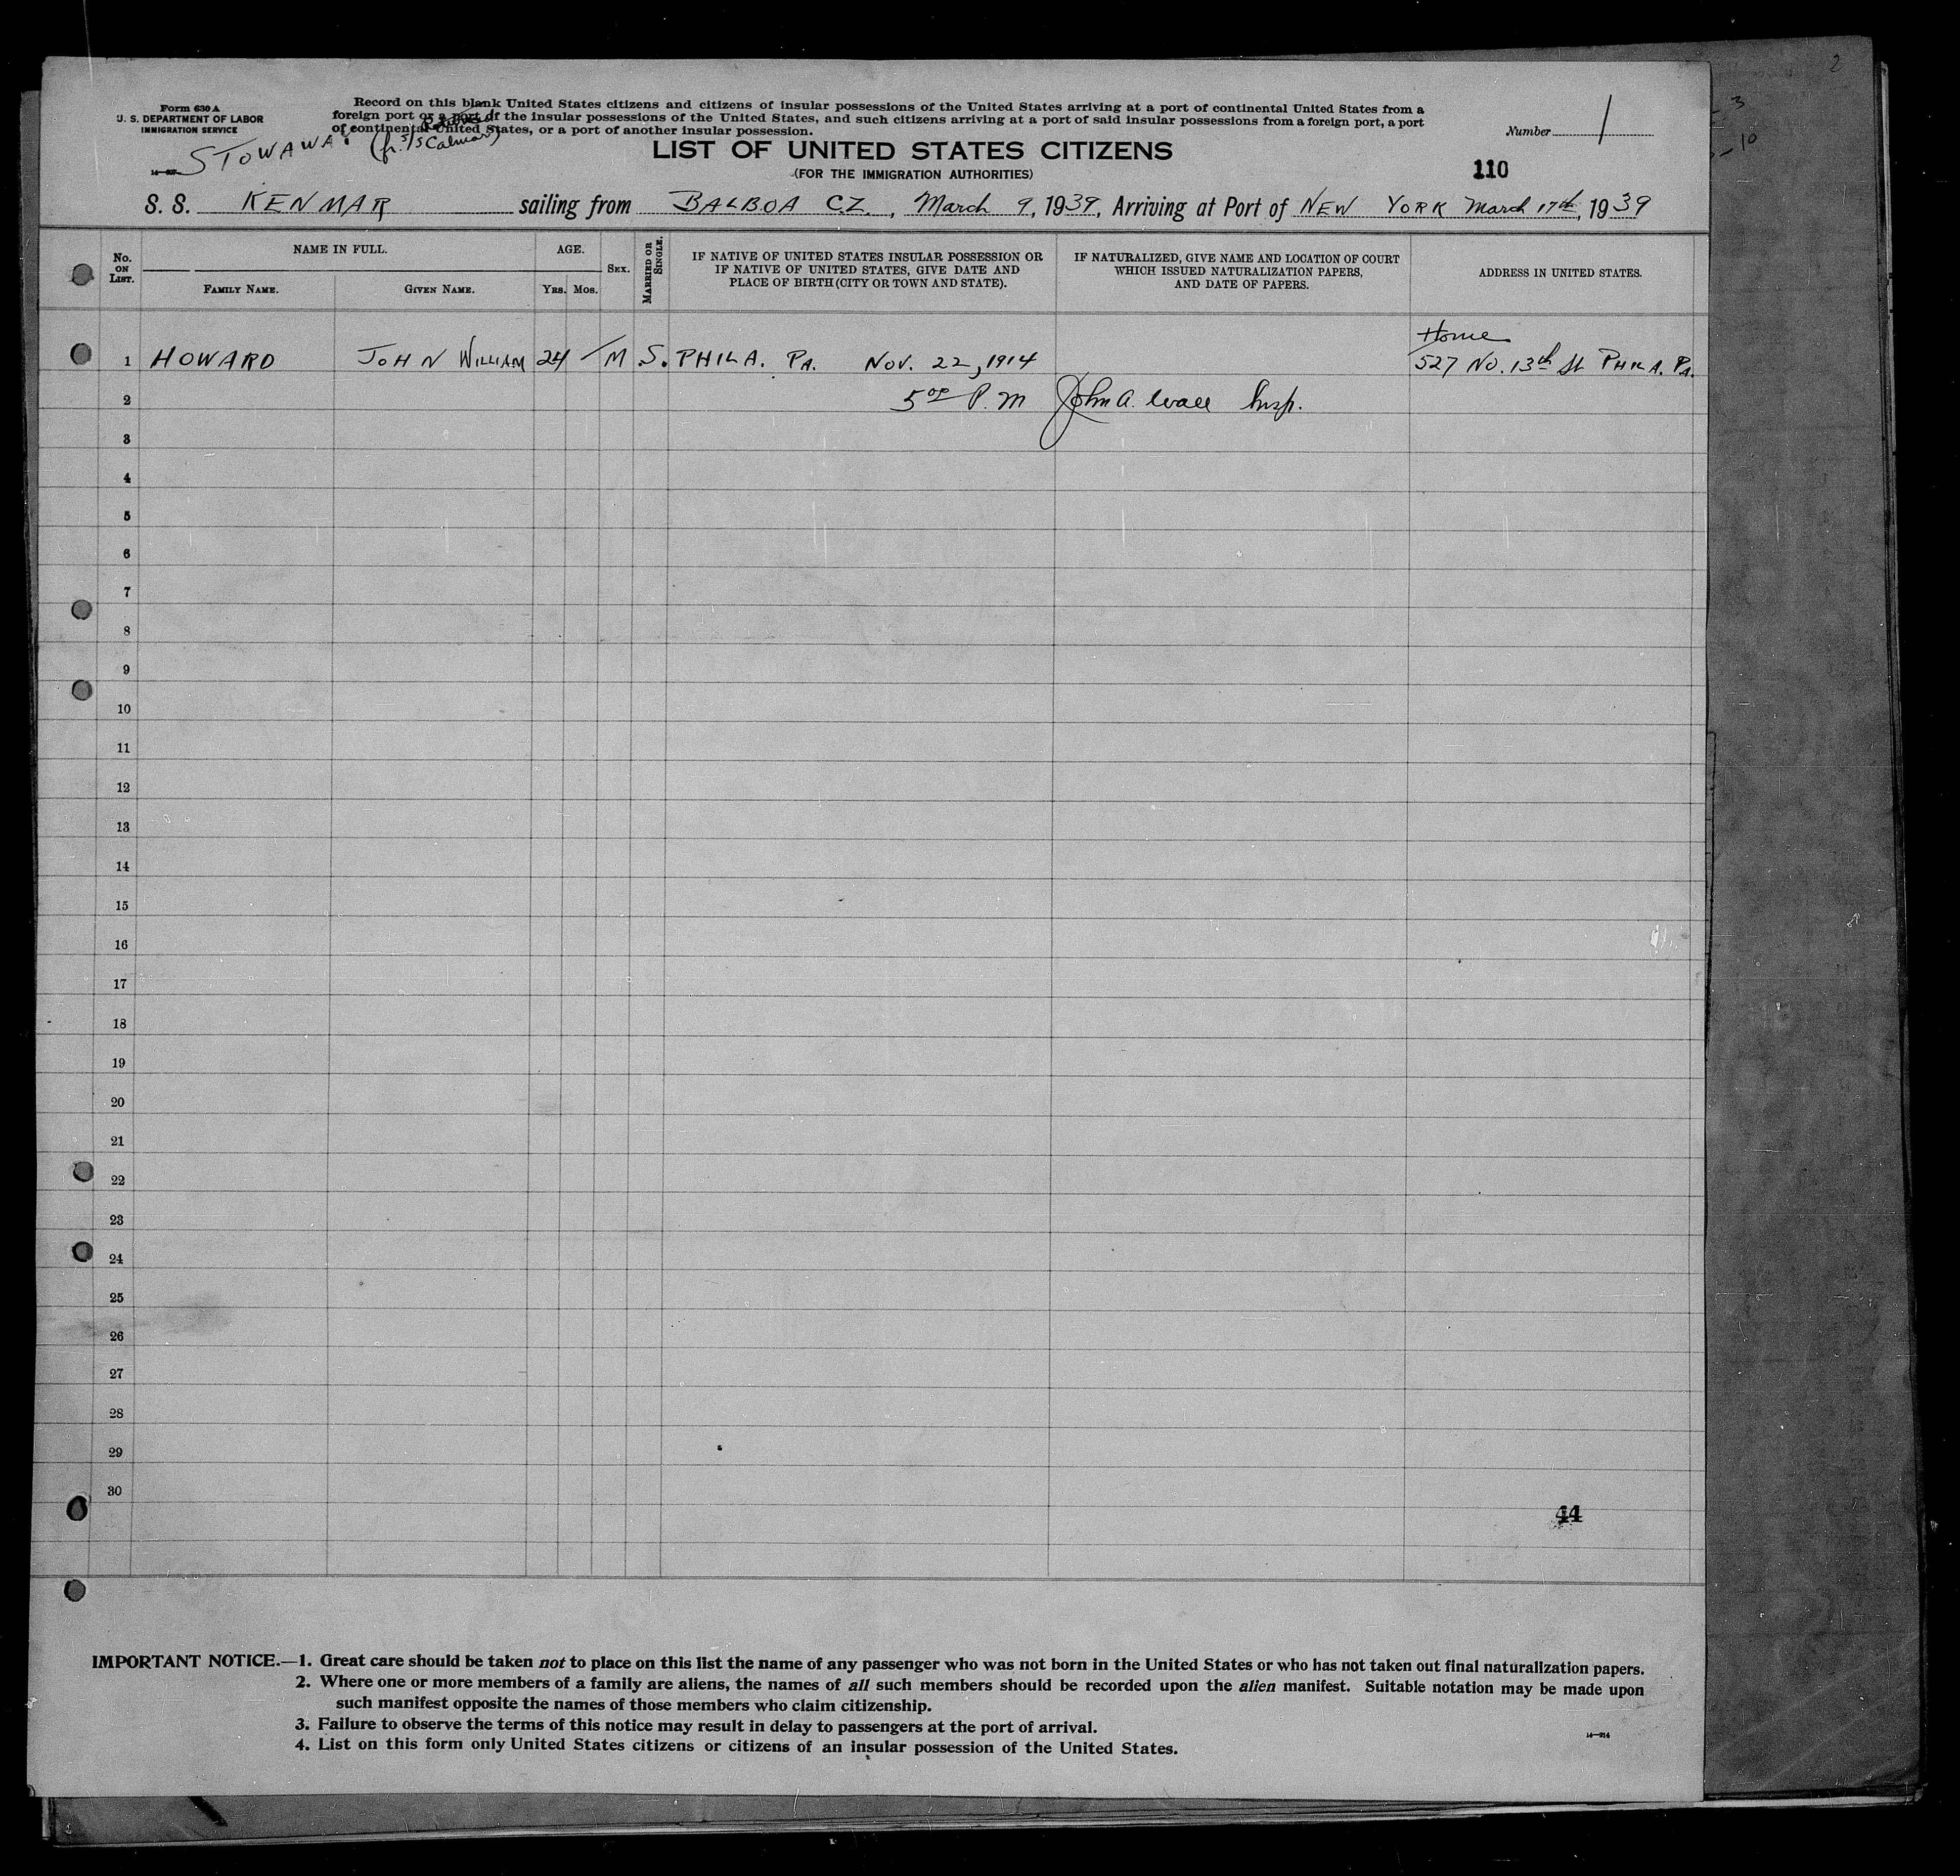 Form 630 A
U. S. DEPARTMENT OF LABOR
IMMIGRATION SERVICE
Record on this blank United States citizens and citizens of insular possessions of the United States arriving at a port of continental United States from a
foreign port or a port of the insular possessions of the United States, and such citizens arriving at a port of said insular possessions from a foreign port, a port
of continental United States, or a port of another insular possession.
Number 1
STOWAWAY (fr. S/S Calmar)
LIST OF UNITED STATES CITIZENS
(FOR THE IMMIGRATION AUTHORITIES)
110
S. S. KENMAR sailing from BALBOA C.Z., March 9, 1939, Arriving at Port of NEW YORK March 17th, 1939
No. ON LIST.
NAME IN FULL.
FAMILY NAME.
GIVEN NAME.
AGE.
YRS. MOS.
SEX.
MARRIED OR SINGLE.
IF NATIVE OF UNITED STATES INSULAR POSSESSION OR
IF NATIVE OF UNITED STATES, GIVE DATE AND
PLACE OF BIRTH (CITY OR TOWN AND STATE).
IF NATURALIZED, GIVE NAME AND LOCATION OF COURT
WHICH ISSUED NATURALIZATION PAPERS,
AND DATE OF PAPERS.
ADDRESS IN UNITED STATES.
Home
1 HOWARD JOHN WILLIAM 24 / M S. PHILA. PA. NOV. 22, 1914 527 NO. 13th St PHILA. PA.
2 5 00 P.M John A. Wall Insp.
3
4
5
6
7
8
9
10
11
12
13
14
15
16
17
18
19
20
21
22
23
24
25
26
27
28
29
30
44
IMPORTANT NOTICE.—1. Great care should be taken not to place on this list the name of any passenger who was not born in the United States or who has not taken out final naturalization papers.
2. Where one or more members of a family are aliens, the names of all such members should be recorded upon the alien manifest. Suitable notation may be made upon
such manifest opposite the names of those members who claim citizenship.
3. Failure to observe the terms of this notice may result in delay to passengers at the port of arrival.
4. List on this form only United States citizens or citizens of an insular possession of the United States.
14—914